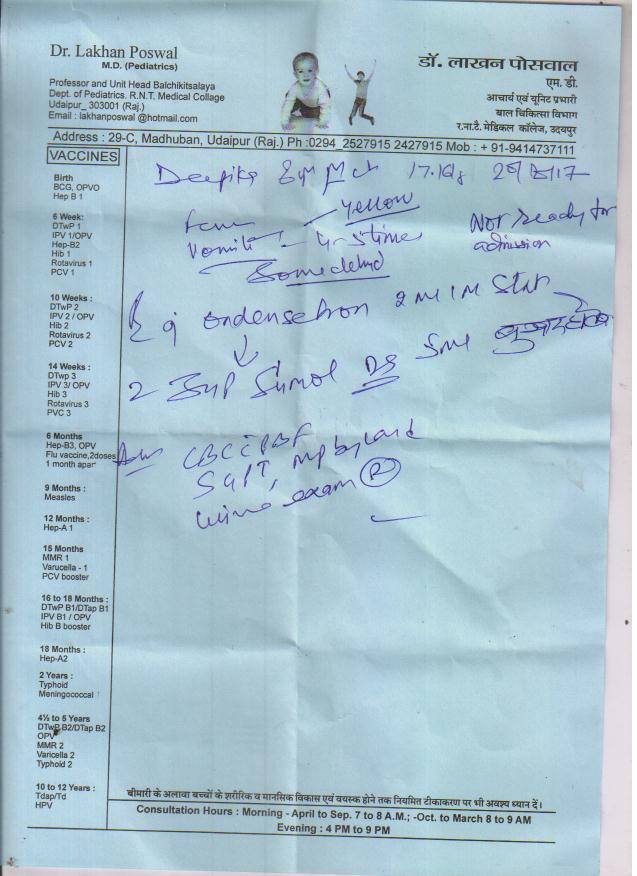 Dr. Lakhan Poswal
M.D. (Pediatrics)
Professor and Unit Head Balchikitsalaya
Dept. of Pediatrics. R.N.T. Medical Collage
Udaipur_ 303001 (Raj.)
Email : lakhanposwal @hotmail.com
डॉ. लाखन पोसवाल
एम. डी.
आचार्य एवं यूनिट प्रभारी
बाल चिकित्सा विभाग
र.ना.टै. मेडिकल कॉलेज, उदयपुर
Address : 29-C, Madhuban, Udaipur (Raj.) Ph :0294_2527915 2427915 Mob : + 91-9414737111
VACCINES
Birth
BCG, OPVO
Hep B 1
6 Week:
DTwP 1
IPV 1/OPV
Hep-B2
Hib 1
Rotavirus 1
PCV 1
10 Weeks :
DTwP 2
IPV 2 / OPV
Hib 2
Rotavirus 2
PCV 2
14 Weeks :
DTwp 3
IPV 3/ OPV
Hib 3
Rotavirus 3
PVC 3
6 Months
Hep-B3, OPV
Flu vaccine,2doses
1 month apart
9 Months :
Measles
12 Months :
Hep-A 1
15 Months
MMR 1
Varucella - 1
PCV booster
16 to 18 Months :
DTwP B1/DTap B1
IPV B1 / OPV
Hib B booster
18 Months :
Hep-A2
2 Years :
Typhoid
Meningococcal
4½ to 5 Years
DTwP B2/DTap B2
OPV
MMR 2
Varicella 2
Typhoid 2
10 to 12 Years :
Tdap/Td
HPV
Deepika
Yellow
Not ready for
admission
Some
ondensetron 2 ml IM Stat
2 Syp DS 5ml
CBC
SGPT, mp by card
urine exam (R)
बीमारी के अलावा बच्चों के शरीरिक व मानसिक विकास एवं वयस्क होने तक नियमित टीकाकरण पर भी अवश्य ध्यान दें।
Consultation Hours : Morning - April to Sep. 7 to 8 A.M.; -Oct. to March 8 to 9 AM
Evening : 4 PM to 9 PM